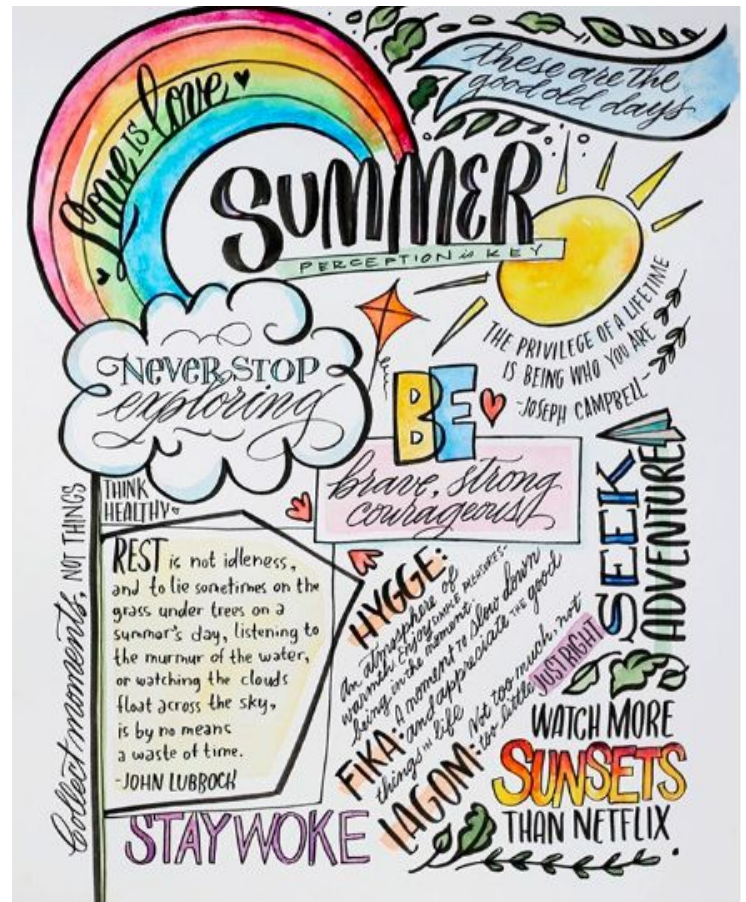 these are the
good old days
Love IS love
SUMMER
PERCEPTION is KEY
THE PRIVILEGE OF A LIFETIME
IS BEING WHO YOU ARE
-JOSEPH CAMPBELL-
NEVER STOP
exploring
BE
brave, strong
courageous
SEEK
ADVENTURE
THINK
HEALTHY
Collect moments, NOT THINGS
REST is not idleness,
and to lie sometimes on the
grass under trees on a
summer's day, listening to
the murmur of the water,
or watching the clouds
float across the sky,
is by no means
a waste of time.
-JOHN LUBBOCK
HYGGE:
an atmosphere of
warmth. Enjoy SIMPLE PLEASURES-
being in the moment
FIKA: A moment to slow down
and appreciate THE good
things IN life
LAGOM: Not too much, not
too little JUST RIGHT
WATCH MORE
SUNSETS
THAN NETFLIX
STAY WOKE